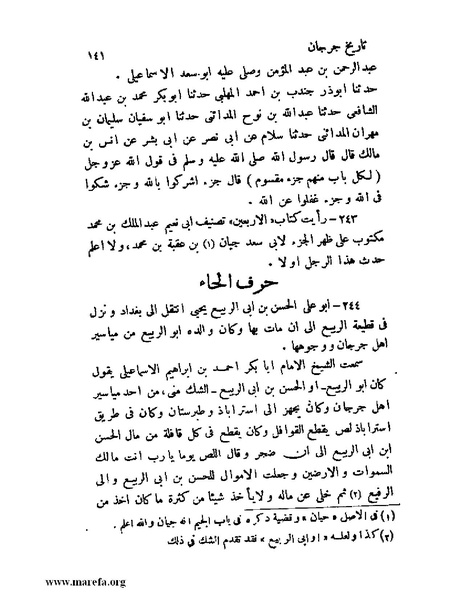 تاريخ جرجان
١٤١
عبدالرحمن بن عبد المؤمن وصلى عليه ابو سعد الاسماعيلى .
حدثنا ابوذر جندب بن احمد المهلبى حدثنا ابوبكر محمد بن عبدالله
الشافعى حدثنا عبدالله بن نوح المدائنى حدثنا ابو سفيان سليمان بن
مهران المدائنى حدثنا سلام عن ابى نصر عن ابى بشر عن انس بن
مالك قال قال رسول الله صلى الله عليه وسلم فى قول الله عزوجل
( لكل باب منهم جزء مقسوم ) قال جزء اشركوا بالله وجزء شكوا
فى الله وجزء غفلوا عن الله .
٢٤٣ - رأيت كتاب «الاربعين» تصنيف ابى نعيم عبدالملك بن محمد
مكتوب على ظهر الجزء لابى سعد جيان (١) بن عقبة بن محمد، ولا اعلم
حدث هذا الرجل اولا .
حرف الحاء
٢٤٤ - ابو على الحسن بن ابى الربيع يحيى انتقل الى بغداد ونزل
فى قطيعة الربيع الى ان مات بها وكان والده ابو الربيع من مياسير
اهل جرجان ووجوهها .
سمعت الشيخ الامام ابا بكر احمد بن ابراهيم الاسماعيلى يقول
كان ابو الربيع - او الحسن بن ابى الربيع - الشك منى، من احد مياسير
اهل جرجان وكان يجهز الى استراباذ وطبرستان وكان فى طريق
استراباذ لص يقطع القوافل وكان يقطع فى كل قافلة من مال الحسن
ابن ابى الربيع الى ان ضجر وقال اللص يوما يارب انت مالك
السموات والارضين وجعلت الاموال للحسن بن ابى الربيع والى
الرفيع (٢) ثم خلى عن ماله ولا يأخذ شيئا من كثرة ما كان اخذ من
(١) فى الاصل «حيان» وقضية ذكره فى باب الجيم انه جيان والله اعلم .
(٢) كذا ولعله «او ابى الربيع» فقد تقدم الشك فى ذلك
www.marefa.org